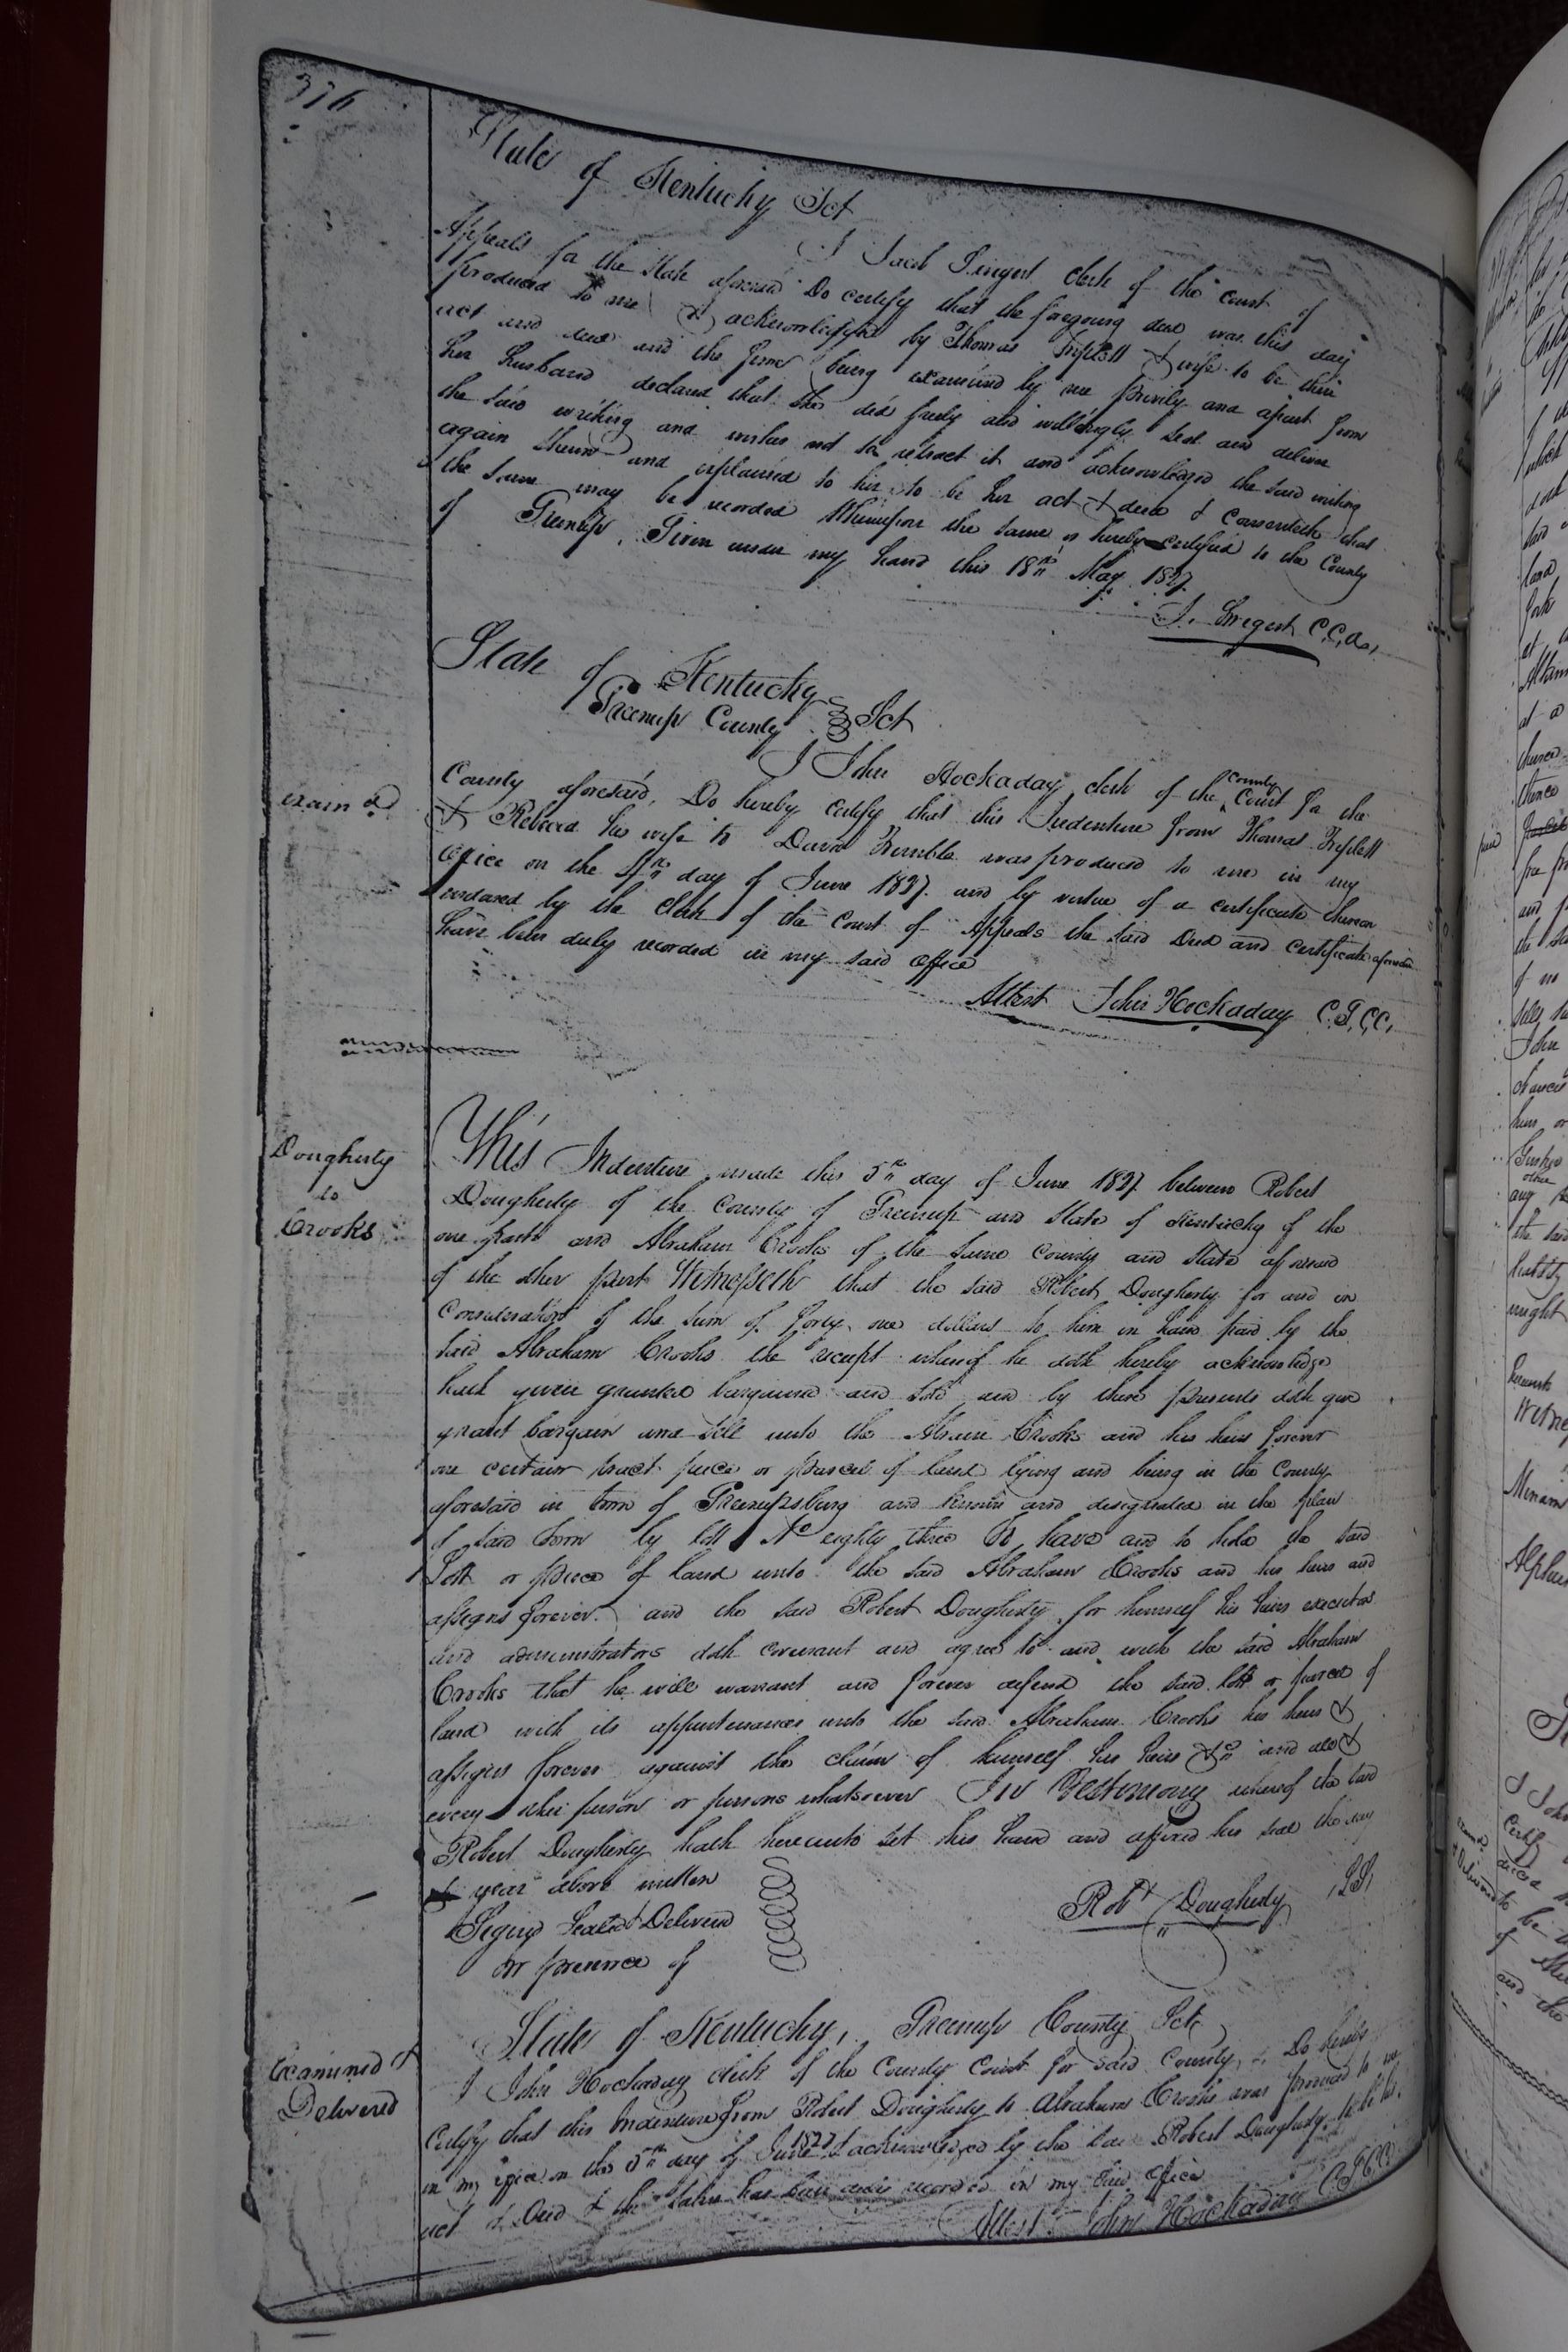 376
State of Kentucky Sct
I Jacob Swigert clerk of the court of
Appeals for the State aforesaid Do certify that the foregoing deed was this day
produced to me & acknowledged by Thomas Triplett & wife to be their
act and deed and the being examined by me privily and apart from
her husband declared that she did freely and willingly seal and deliver
the said writing and wishes not to retract it and acknowledged the said writing
again shewn and explained to her to be her act & deed & consenteth that
the same may be recorded Whereupon the same is hereby certified to the County
of Greenup. Given under my hand this 18th May 1827.
J. Swigert C.C.A.
State of Kentucky
Greenup County Sct
I John Hockaday clerk of the County Court for the
examd
County aforesaid, Do hereby certify that this Indenture from Thomas Triplett
& Rebecca his wife to David Trimble was produced to me in my
office on the day of June 1827. and by virtue of a certificate thereon
endorsed by the Clerk of the Court of Appeals the said Deed and certificate aforesaid
have been duly recorded in my said office
Attest John Hockaday C.G.C.C.
Dougherty
to
Crooks
This Indenture made this 5th day of June 1827. between Robert
Dougherty of the County of Greenup and State of Kentucky of the
one part and Abraham Crooks of the same County and State aforesaid
of the other part Witnesseth that the said Robert Dougherty for and in
Consideration of the sum of forty one dollars to him in hand paid by the
said Abraham Crooks the receipt whereof he doth hereby acknowledge
hath given granted bargained and sold and by these presents doth give
grant bargain and sell unto the Abram Crooks and his heirs forever
one certain tract piece or parcel of land lying and being in the County
aforesaid in town of Greenupsburg and known and designated in the plan
of said town by lott No eighty three To have and to hold the said
Lott or piece of land unto the said Abraham Crooks and his heirs and
assigns forever. and the said Robert Dougherty for himself his heirs executors
and administrators doth covenant and agree to and with the said Abraham
Crooks that he will warrant and forever defend the said lott or parcel of
land with its appurtenances unto the said Abraham Crooks his heirs &
assigns forever against the claim of himself his heirs &c and all &
every other person or persons whatsoever In Testimony whereof the said
Robert Dougherty hath hereunto set his hand and affixed his seal the day
& year above written
Signed Sealed & Delivered
in presence of
Robt Dougherty (LS)
State of Kentucky, Greenup County Sct
Examined &
Delivered
I John Hockaday clerk of the County Court for said County, Do hereby
certify that this Indenture from Robert Dougherty to Abraham Crooks was produced to me
in my office on the 5th day of June 1827 & acknowledged by the said Robert Dougherty to be his
act & Deed & the same has been duly recorded in my said office
Attest John Hockaday C.G.C.C.